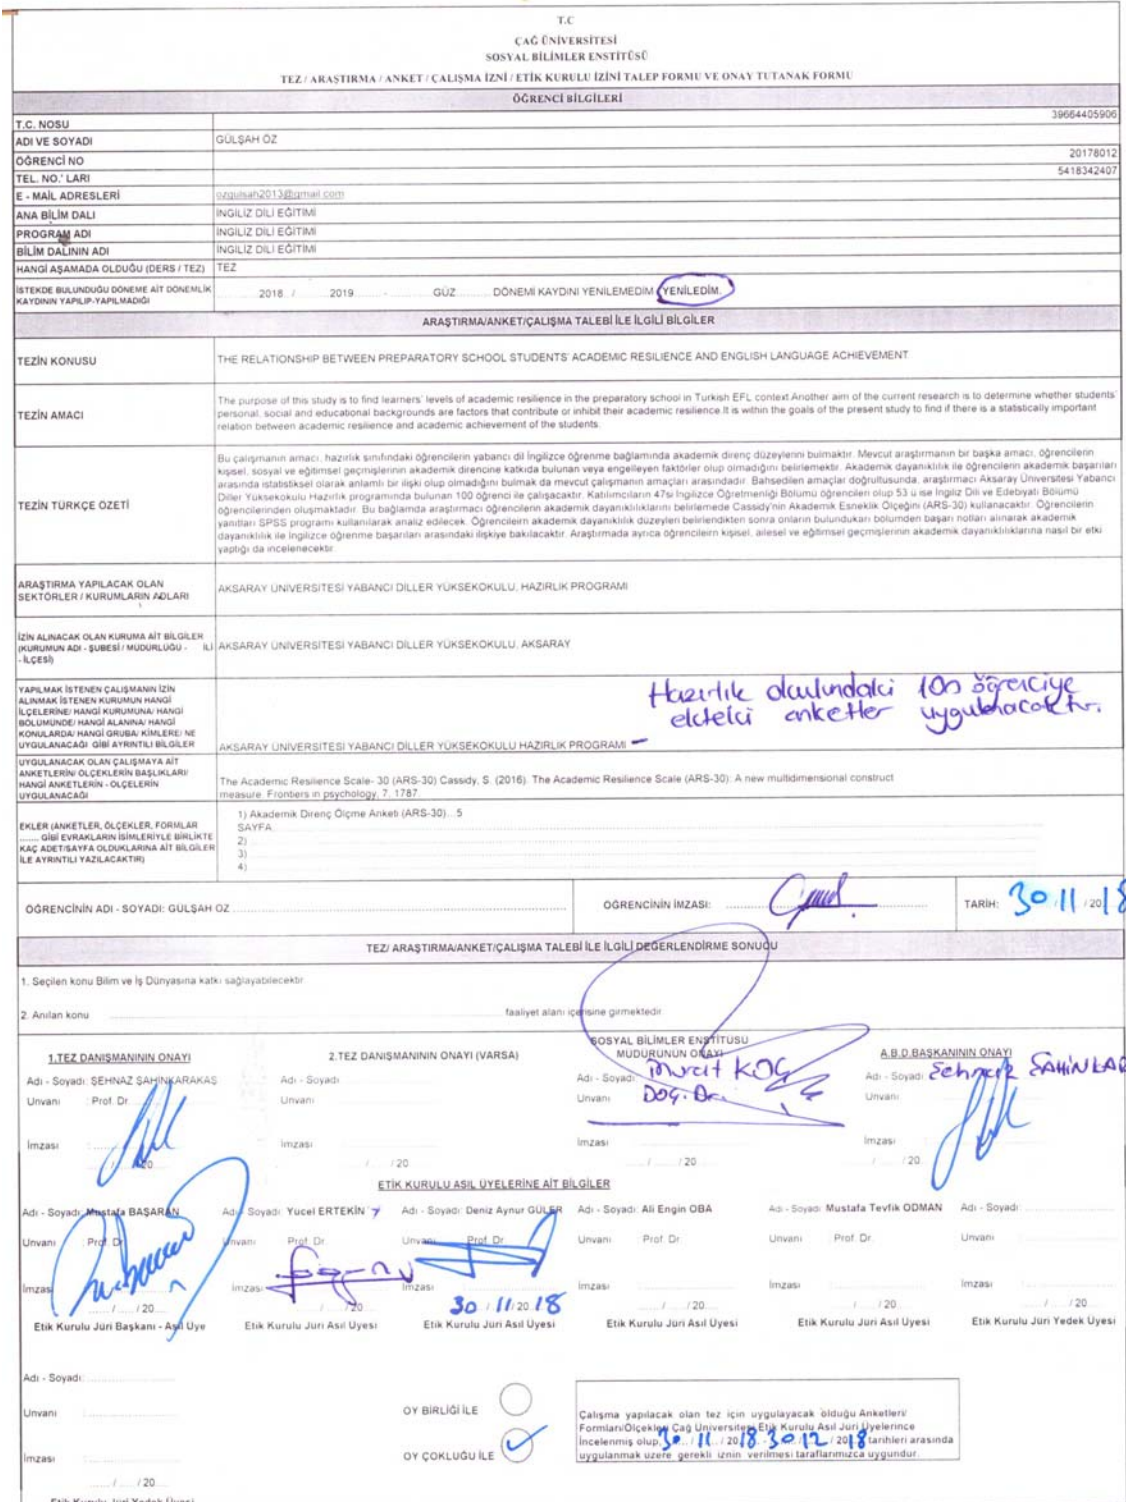 T.C
ÇAĞ ÜNİVERSİTESİ
SOSYAL BİLİMLER ENSTİTÜSÜ
TEZ / ARAŞTIRMA / ANKET / ÇALIŞMA İZNİ / ETİK KURULU İZİNİ TALEP FORMU VE ONAY TUTANAK FORMU
ÖĞRENCİ BİLGİLERİ
T.C. NOSU 39664405906
ADI VE SOYADI GÜLŞAH ÖZ
ÖĞRENCİ NO 20178012
TEL. NO.' LARI 5418342407
E - MAİL ADRESLERİ ozgulsah2013@gmail.com
ANA BİLİM DALI İNGİLİZ DİLİ EĞİTİMİ
PROGRAM ADI İNGİLİZ DİLİ EĞİTİMİ
BİLİM DALININ ADI İNGİLİZ DİLİ EĞİTİMİ
HANGİ AŞAMADA OLDUĞU (DERS / TEZ) TEZ
İSTEKDE BULUNDUĞU DÖNEME AİT DÖNEMLİK
KAYDININ YAPILIP-YAPILMADIĞI
2018 / 2019 - GÜZ DÖNEMİ KAYDINI YENİLEMEDİM YENİLEDİM.
ARAŞTIRMA/ANKET/ÇALIŞMA TALEBİ İLE İLGİLİ BİLGİLER
TEZİN KONUSU THE RELATIONSHIP BETWEEN PREPARATORY SCHOOL STUDENTS' ACADEMIC RESILIENCE AND ENGLISH LANGUAGE ACHIEVEMENT
TEZİN AMACI
The purpose of this study is to find learners' levels of academic resilience in the preparatory school in Turkish EFL context.Another aim of the current research is to determine whether students'
personal, social and educational backgrounds are factors that contribute or inhibit their academic resilience.It is within the goals of the present study to find if there is a statistically important
relation between academic resilience and academic achievement of the students.
TEZİN TÜRKÇE ÖZETİ
Bu çalışmanın amacı, hazırlık sınıfındaki öğrencilerin yabancı dil İngilizce öğrenme bağlamında akademik direnç düzeylerini bulmaktır. Mevcut araştırmanın bir başka amacı, öğrencilerin
kişisel, sosyal ve eğitimsel geçmişlerinin akademik direncine katkıda bulunan veya engelleyen faktörler olup olmadığını belirlemektir. Akademik dayanıklılık ile öğrencilerin akademik başarıları
arasında istatistiksel olarak anlamlı bir ilişki olup olmadığını bulmak da mevcut çalışmanın amaçları arasındadır. Bahsedilen amaçlar doğrultusunda, araştırmacı Aksaray Üniversitesi Yabancı
Diller Yüksekokulu Hazırlık programında bulunan 100 öğrenci ile çalışacaktır. Katılımcıların 47si İngilizce Öğretmenliği Bölümü öğrencileri olup 53 ü ise İngiliz Dili ve Edebiyatı Bölümü
öğrencilerinden oluşmaktadır. Bu bağlamda araştırmacı öğrencilerin akademik dayanıklılıklarını belirlemede Cassidy'nin Akademik Esneklik Ölçeğini (ARS-30) kullanacaktır. Öğrencilerin
yanıtları SPSS programı kullanılarak analiz edilecek. Öğrencileirn akademik dayanıklılık düzeylen belirlendikten sonra onların bulundukarı bölümden başarı notları alınarak akademik
dayanıklılık ile İngilizce öğrenme başarıları arasındaki ilişkiye bakılacaktır. Araştırmada ayrıca öğrencileirn kişisel, ailesel ve eğitimsel geçmişlerinin akademik dayanıklılıklarına nasıl bir etki
yaptığı da incelenecektir
ARAŞTIRMA YAPILACAK OLAN
SEKTÖRLER / KURUMLARIN ADLARI
AKSARAY ÜNİVERSİTESİ YABANCI DİLLER YÜKSEKOKULU, HAZIRLIK PROGRAMI
İZİN ALINACAK OLAN KURUMA AİT BİLGİLER
(KURUMUN ADI - ŞUBESİ / MÜDÜRLÜĞÜ - İLİ
- İLÇESİ)
AKSARAY ÜNİVERSİTESİ YABANCI DİLLER YÜKSEKOKULU, AKSARAY
YAPILMAK İSTENEN ÇALIŞMANIN İZİN
ALINMAK İSTENEN KURUMUN HANGİ
İLÇELERİNE/ HANGİ KURUMUNA/ HANGİ
BÖLÜMÜNDE/ HANGİ ALANINA/ HANGİ
KONULARDA/ HANGİ GRUBA/ KİMLERE/ NE
UYGULANACAĞI GİBİ AYRINTILI BİLGİLER
Hazırlık okulundaki 100 öğrenciye
ekteki anketler uygulanacaktır.
AKSARAY ÜNİVERSİTESİ YABANCI DİLLER YÜKSEKOKULU HAZIRLIK PROGRAMI
UYGULANACAK OLAN ÇALIŞMAYA AİT
ANKETLERİN/ ÖLÇEKLERİN BAŞLIKLARI/
HANGİ ANKETLERİN - ÖLÇELERİN
UYGULANACAĞI
The Academic Resilience Scale- 30 (ARS-30) Cassidy, S. (2016). The Academic Resilience Scale (ARS-30): A new multidimensional construct
measure. Frontiers in psychology, 7, 1787.
EKLER (ANKETLER, ÖLÇEKLER, FORMLAR
....... GİBİ EVRAKLARIN İSİMLERİYLE BİRLİKTE
KAÇ ADET/SAYFA OLDUKLARINA AİT BİLGİLER
İLE AYRINTILI YAZILACAKTIR)
1) Akademik Direnç Ölçme Anketi (ARS-30)...5
SAYFA
2)
3)
4)
ÖĞRENCİNİN ADI - SOYADI: GÜLŞAH ÖZ
ÖĞRENCİNİN İMZASI:
TARİH: 30 / 11 / 2018
TEZ/ ARAŞTIRMA/ANKET/ÇALIŞMA TALEBİ İLE İLGİLİ DEĞERLENDİRME SONUCU
1. Seçilen konu Bilim ve İş Dünyasına katkı sağlayabilecektir.
2. Anılan konu faaliyet alanı içerisine girmektedir
1.TEZ DANIŞMANININ ONAYI 2.TEZ DANIŞMANININ ONAYI (VARSA) SOSYAL BİLİMLER ENSTİTÜSÜ MÜDÜRÜNÜN ONAYI A.B.D.BAŞKANININ ONAYI
Adı - Soyadı: ŞEHNAZ ŞAHİNKARAKAŞ Adı - Soyadı: Adı - Soyadı: Murat KOÇ Adı - Soyadı: Şehnaz
Unvanı : Prof. Dr. Unvanı Unvanı Doç. Dr. Unvanı
İmzası İmzası İmzası İmzası
/ 20 / / 20 / / 20 / / 20
ETİK KURULU ASIL ÜYELERİNE AİT BİLGİLER
Adı - Soyadı: Mustafa BAŞARAN Adı - Soyadı: Yücel ERTEKİN Adı - Soyadı: Deniz Aynur GÜLER Adı - Soyadı: Ali Engin OBA Adı - Soyadı: Mustafa Tevfik ODMAN Adı - Soyadı:
Unvanı : Prof. Dr. Unvanı Prof. Dr. Unvanı Prof. Dr. Unvanı : Prof. Dr. Unvanı : Prof. Dr. Unvanı
İmzası İmzası İmzası İmzası İmzası İmzası
/ / 20 / 20 30 / 11 / 2018 / / 20 / / 20 / / 20
Etik Kurulu Jüri Başkanı - Asıl Üye Etik Kurulu Jüri Asıl Üyesi Etik Kurulu Jüri Asıl Üyesi Etik Kurulu Jüri Asıl Üyesi Etik Kurulu Jüri Asıl Üyesi Etik Kurulu Jüri Yedek Üyesi
Adı - Soyadı:
Unvanı
İmzası
/ / 20
Etik Kurulu Jüri Yedek Üyesi
OY BİRLİĞİ İLE
OY ÇOKLUĞU İLE
Çalışma yapılacak olan tez için uygulayacak olduğu Anketleri/
Formları/Ölçekleri Çağ Üniversitesi Etik Kurulu Asıl Jüri Üyelerince
İncelenmiş olup, 30 / 11 / 2018 - 30 / 12 / 2018 tarihleri arasında
uygulanmak üzere gerekli iznin verilmesi taraflarımızca uygundur.